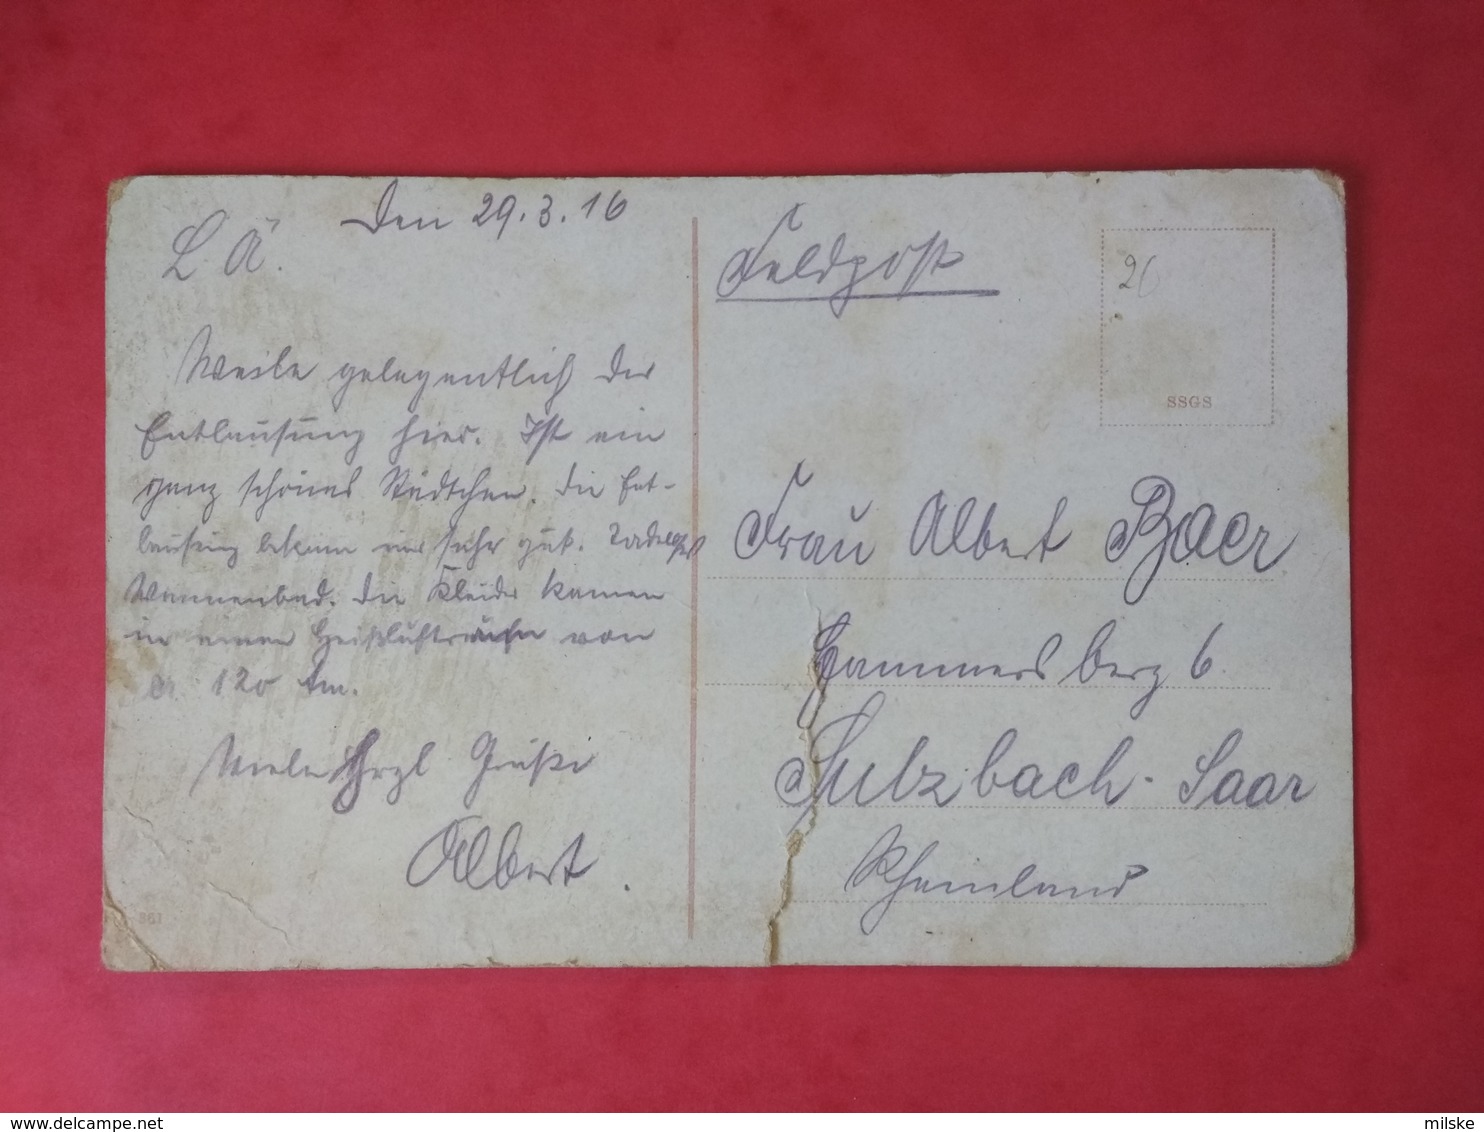 Den 29.3.16
L. Ä.
Weile gelegentlich der
Entlausung hier. Ist ein
ganz schönes Städtchen. Die Ent-
lausung bekam uns sehr gut. Tadellos
Wannenbad. Die Kleider kamen
in einen von
120
Viele Hrzl Grüße
Albert.
861
Feldpost
26
SSGS
Frau Albert Baer
Hammersberg 6
Sulzbach-Saar
Rheinland
delcampe.net
milske